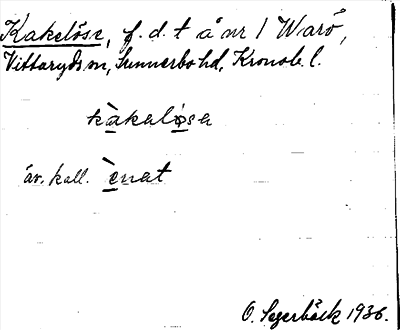 Kakelöse, f.d.t å nr 1 Warö,
Vittaryds sn, Sunnerbo hd, Kronob. l.
kàkaløsa
äv. kall. ènat
O. Segerbäck 1936.